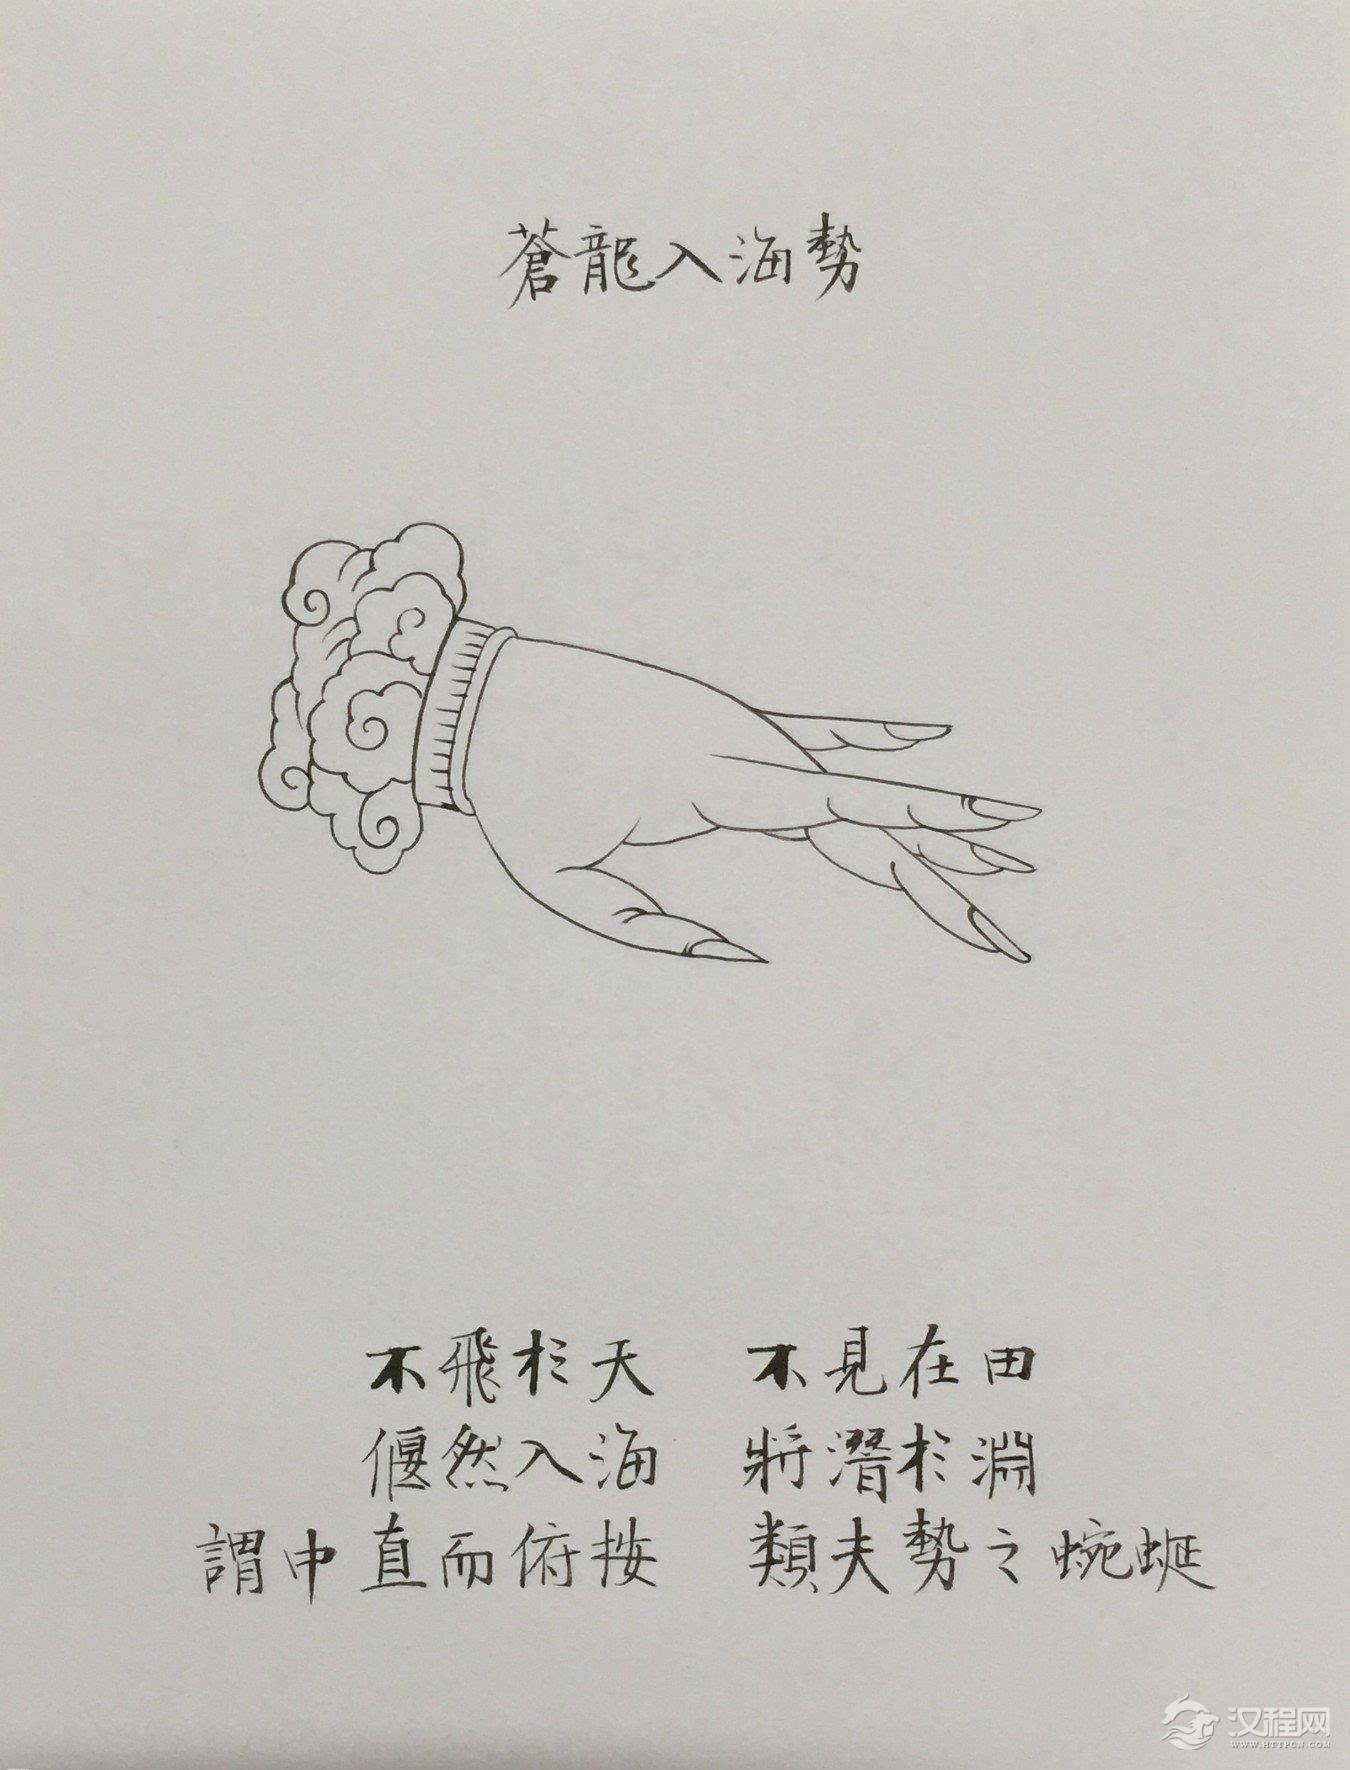 蒼龍入海勢
不飛於天　不見在田
偃然入海　將潛於淵
謂中直而俯按　類夫勢之蜿蜒
汉程网
WWW.HTTPCN.COM